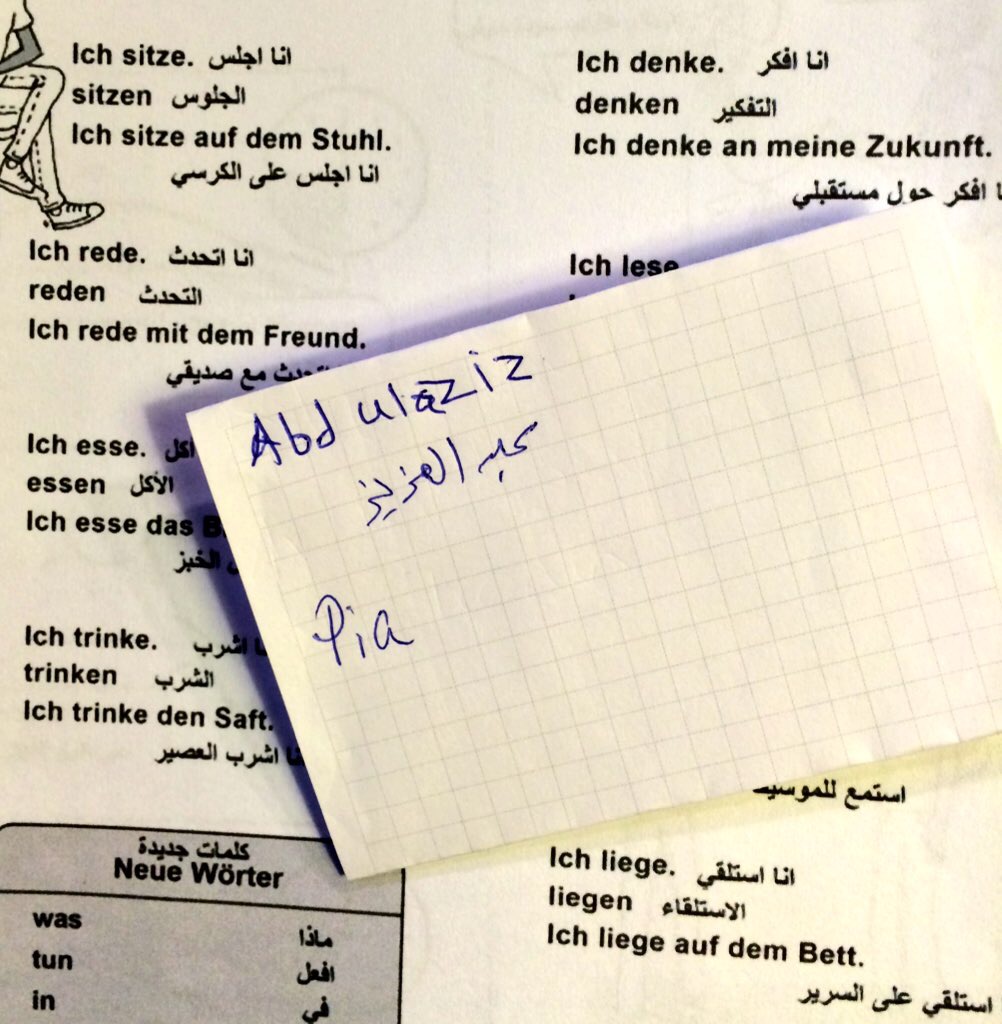 Ich sitze. انا اجلس
sitzen الجلوس
Ich sitze auf dem Stuhl.
انا اجلس على الكرسي
Ich rede. انا اتحدث
reden التحدث
Ich rede mit dem Freund.
مع صديقي
Ich esse. اكل
essen الأكل
Ich esse das
الخبز
Ich trinke. اشرب
trinken الشرب
Ich trinke den Saft.
اشرب العصير
كلمات جديدة
Neue Wörter
was ماذا
tun افعل
in في
Ich denke. انا افكر
denken التفكير
Ich denke an meine Zukunft.
افكر حول مستقبلي
Ich lese
Abdulaziz
عبد العزيز
Pia
استمع
Ich liege. انا استلقي
liegen الاستلقاء
Ich liege auf dem Bett.
استلقي على السرير